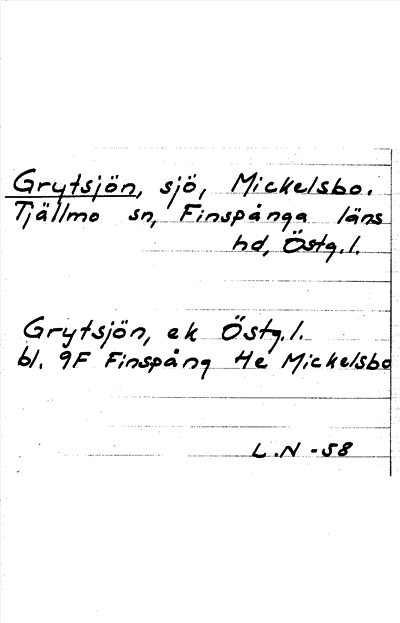 Grytsjön, sjö, Mickelsbo.
Tjällmo sn, Finspånga läns
hd, Östg.l.
Grytsjön, ek Östg.l.
bl. 9F Finspång 4e Mickelsbo
L.N -58